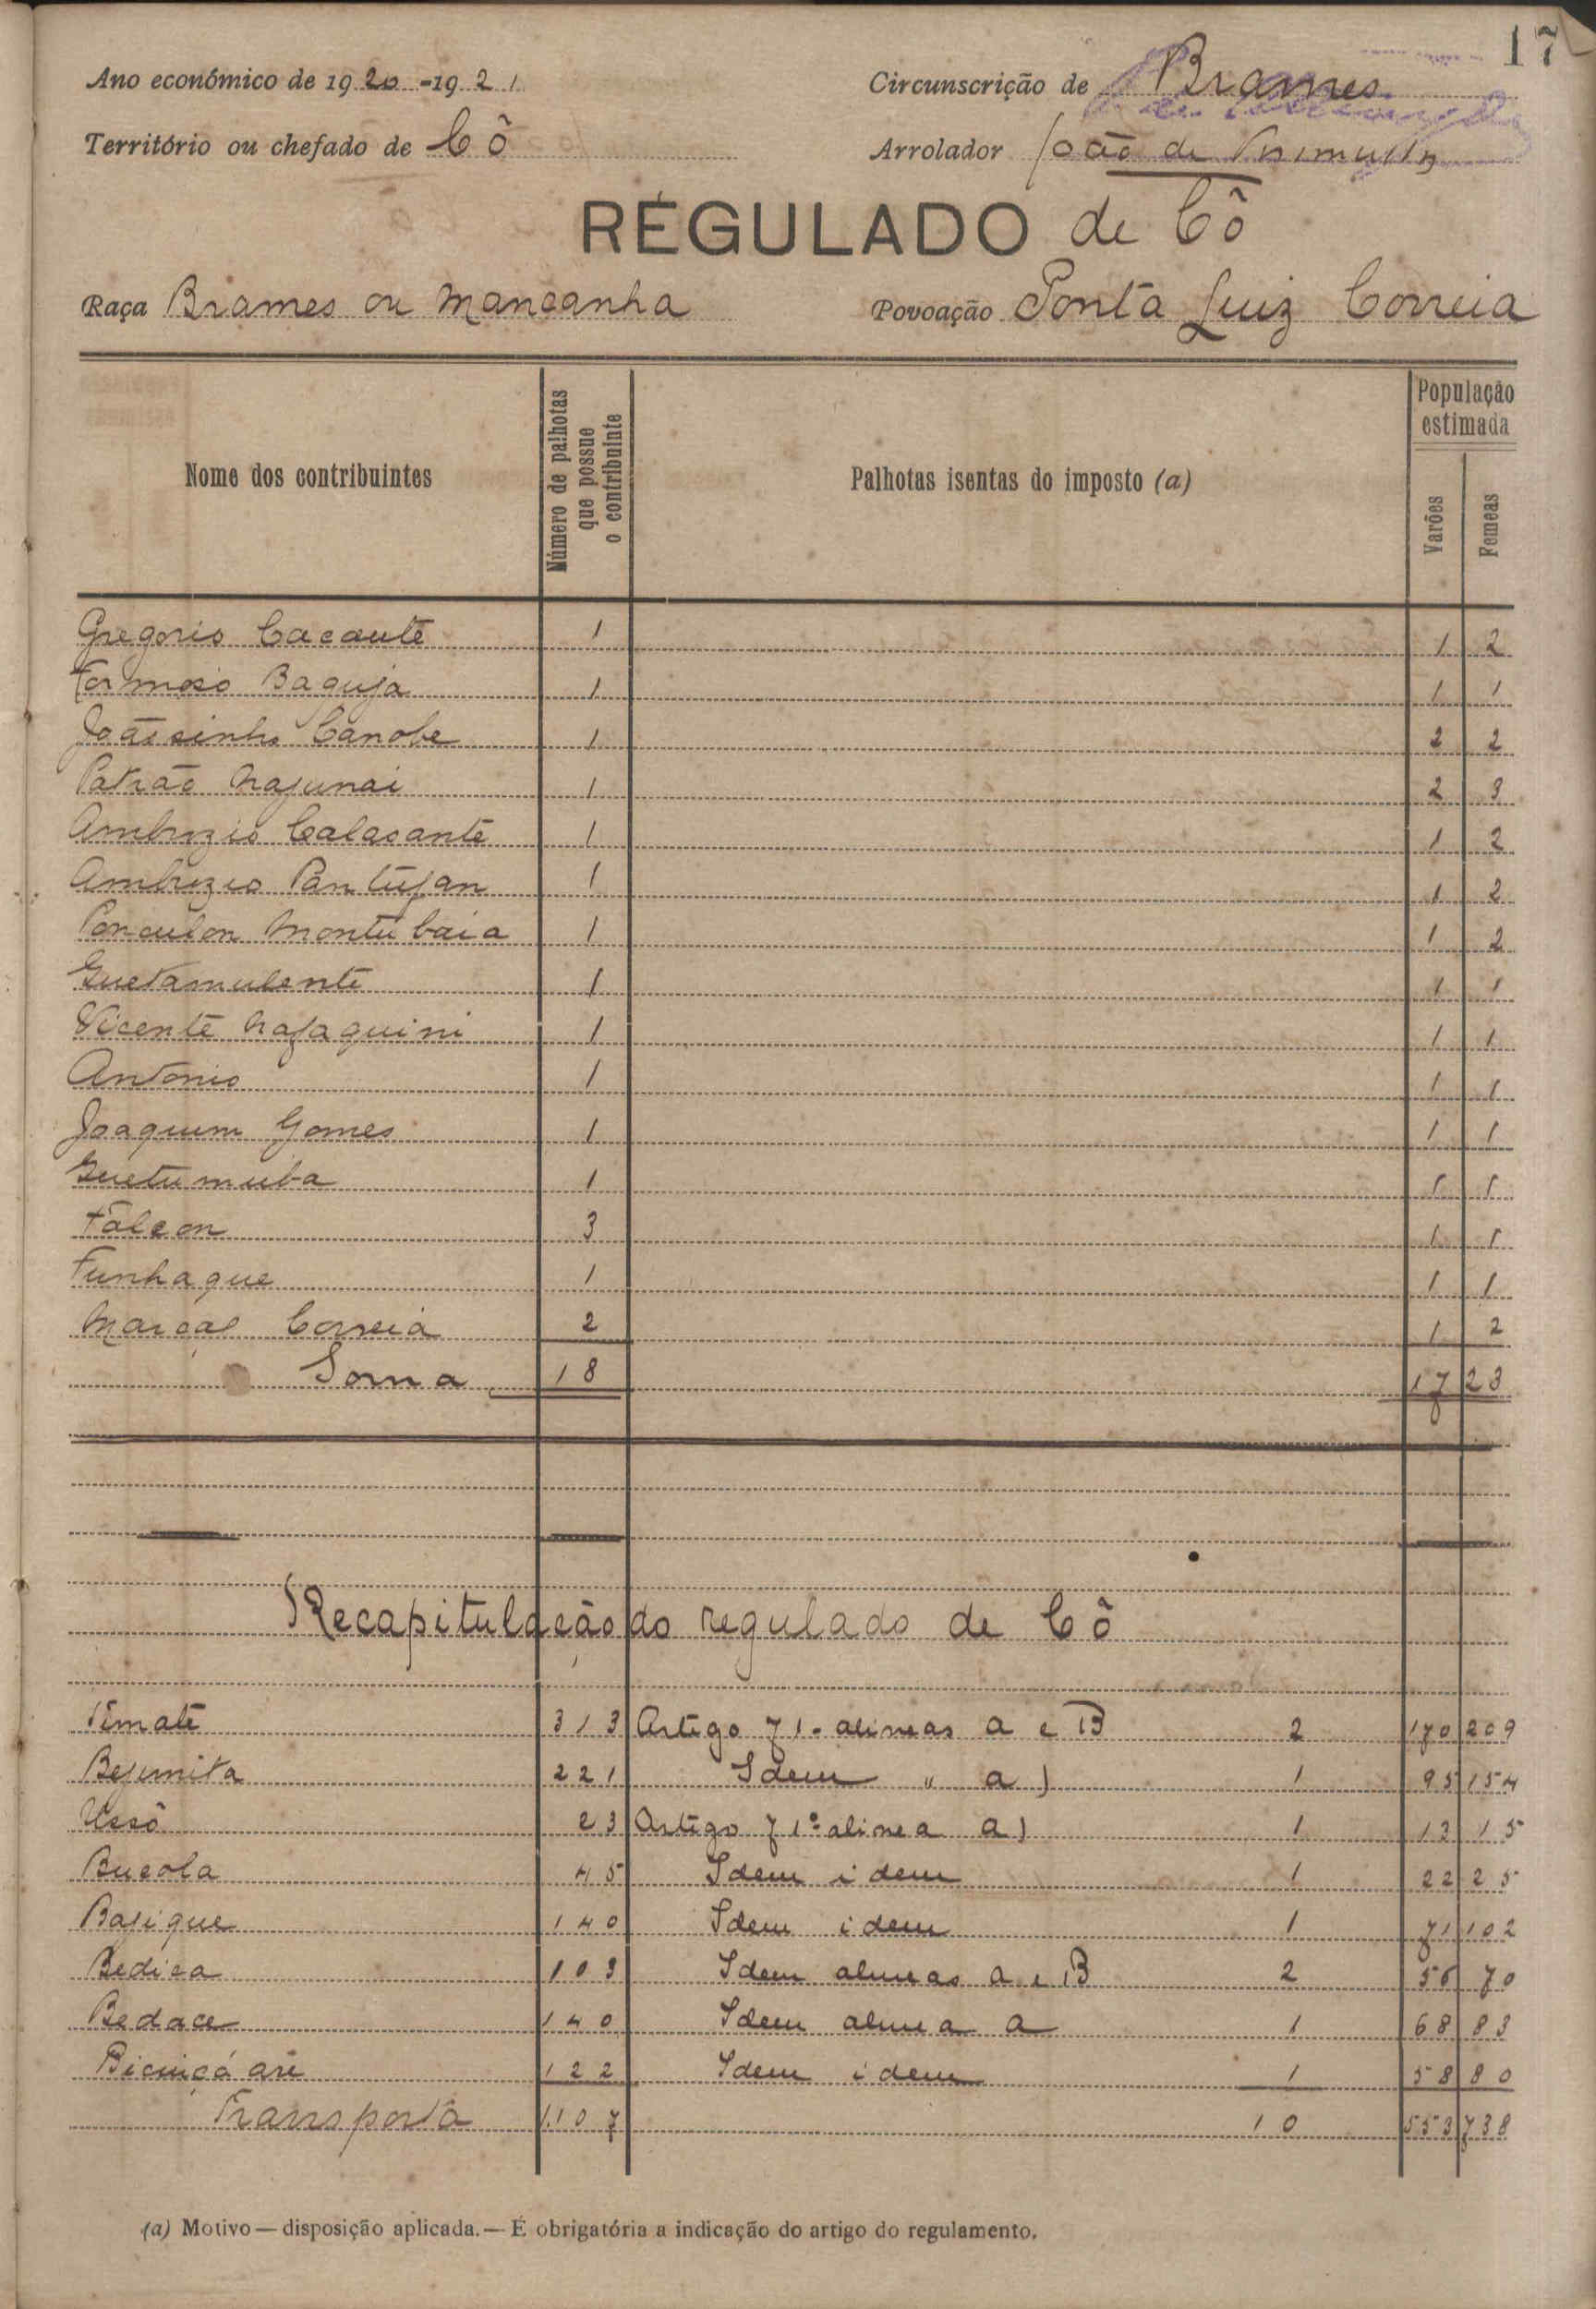 17
Ano económico de 1920-1921 Circunscrição de Brames
Território ou chefado de Cô Arrolador João de
RÉGULADO de Cô
Raça Brames ou Mancanha Povoação Ponta Luiz Correia
Nome dos contribuintes Número de palhotas que possue o contribuinte Palhotas isentas do imposto (a) População estimada Varões Femeas
Gregorio Cacauté 1 1 2
Formoso Baguja 1 1 1
Joãosinho Canobe 1 2 2
Patrão Najunai 1 2 3
Ambrozio Calacanté 1 1 2
Ambrozio Pantufan 1 1 2
Montubaia 1 1 2
Guetamulenté 1 1 1
Vicente Nafaquini 1 1 1
Antonio 1 1 1
Joaquim Gomes 1 1 1
Guetumuba 1 1 1
Falcon 3 1 1
Funhaque 1 1 1
Marcal Correia 2 1 2
Soma 18 17 23
Recapitulação do regulado de Cô
Timaté 313 Artigo 71- alineas a e B 2 170 209
Bejimita 221 Idem " a) 1 95 154
Ussô 23 Artigo 71º alinea a) 1 13 15
Bucola 45 Idem idem 1 22 25
Bajique 140 Idem idem 1 71 102
Bedica 103 Idem alineas a e B 2 56 70
Bedace 140 Idem alinea a 1 68 83
122 Idem idem 1 58 80
Transporta 1.107 10 553 738
(a) Motivo — disposição aplicada. — É obrigatória a indicação do artigo do regulamento.